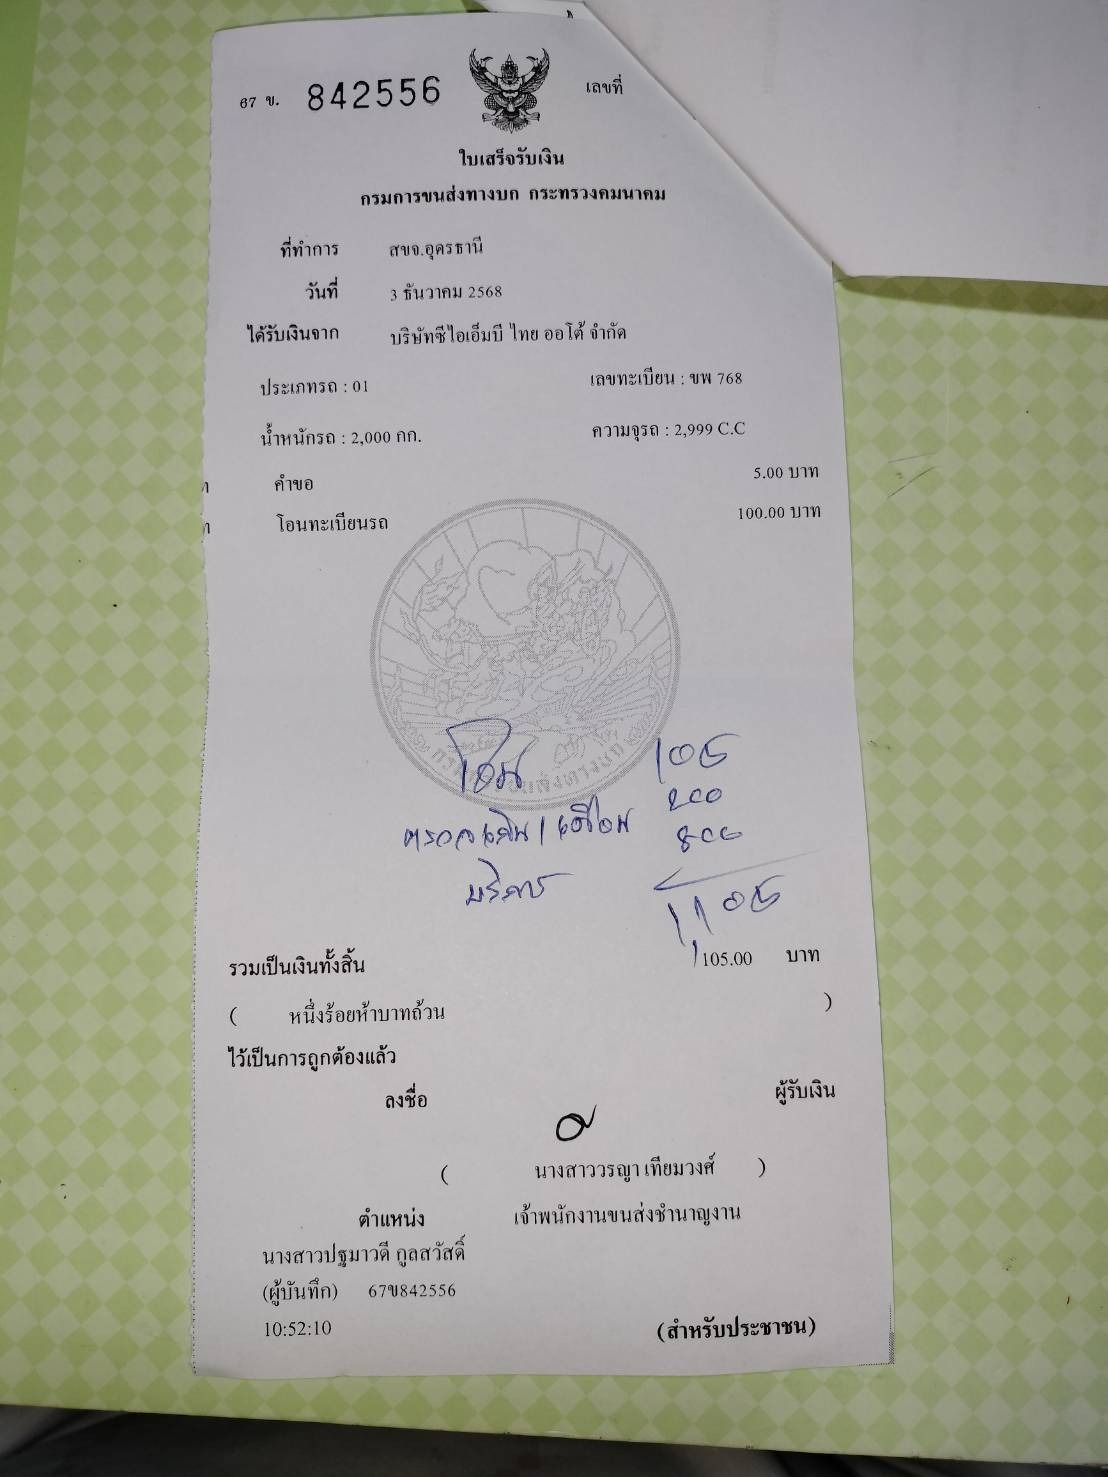 67 ข. 842556 เลขที่
ใบเสร็จรับเงิน
กรมการขนส่งทางบก กระทรวงคมนาคม
ที่ทำการ สขจ.อุดรธานี
วันที่ 3 ธันวาคม 2568
ได้รับเงินจาก บริษัทซีไอเอ็มบี ไทย ออโต้ จำกัด
ประเภทรถ : 01 เลขทะเบียน : ขพ 768
น้ำหนักรถ : 2,000 กก. ความจุรถ : 2,999 C.C
คำขอ 5.00 บาท
โอนทะเบียนรถ 100.00 บาท
โอน 105
200
800
บริการ
1,105
รวมเป็นเงินทั้งสิ้น 105.00 บาท
( หนึ่งร้อยห้าบาทถ้วน )
ไว้เป็นการถูกต้องแล้ว
ลงชื่อ ผู้รับเงิน
( นางสาววรญา เทียมวงศ์ )
ตำแหน่ง เจ้าพนักงานขนส่งชำนาญงาน
นางสาวปฐมาวดี กูลสวัสดิ์
(ผู้บันทึก) 67ข842556
10:52:10 (สำหรับประชาชน)